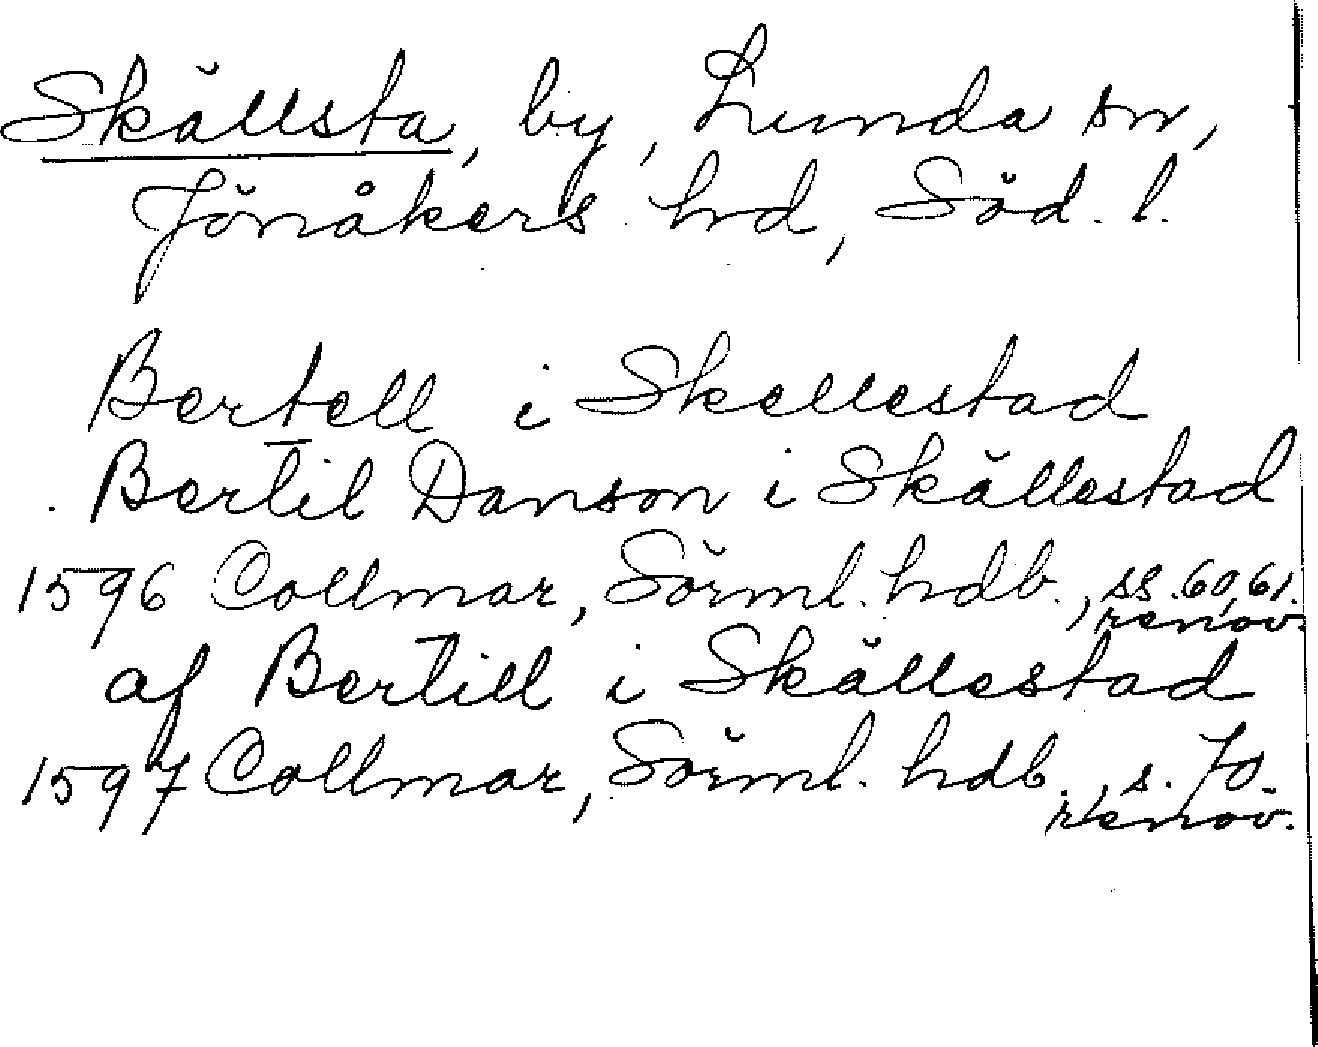 Skällsta, by, Lunda sn,
Jönåkers hd, Söd. l.
Bertell i Skellestad
Bertil Danson i Skällestad
1596 Collmar, Sörml. hdb., ss. 60, 61.
renov.
af Bertill i Skällestad
1597 Collmar, Sörml. hdb., s. 70.
renov.